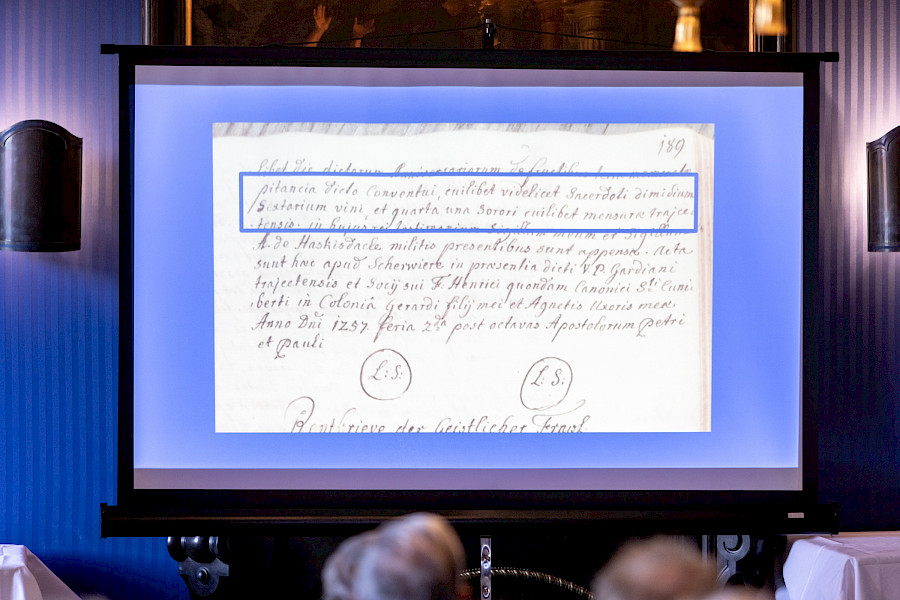 189
libet die dictarum Anniversariorum de fructibus
pitancia dicto Conventui, cuilibet videlicet Sacerdoti dimidium
Sextarium vini, et quarta una Sorori cuilibet mensuræ traje-
ctensis. in hujus rei testimonium Sigillum meum et Sigillum
A. de Haskisdaele militis presentibus sunt appensa. Acta
sunt hæc apud Scherwiere in præsentia dicti V. P. Gardiani
trajectensis et Socij sui F. Henrici quondam Canonici Sti Cuni-
berti in Coloniâ Gerardi filij mei et Agnetis Uxoris meæ
Anno Dni 1257 feria 2da post octavas Apostolorum Petri
et Pauli
L: S:
L: S:
Rentbrieve der Geistlicher